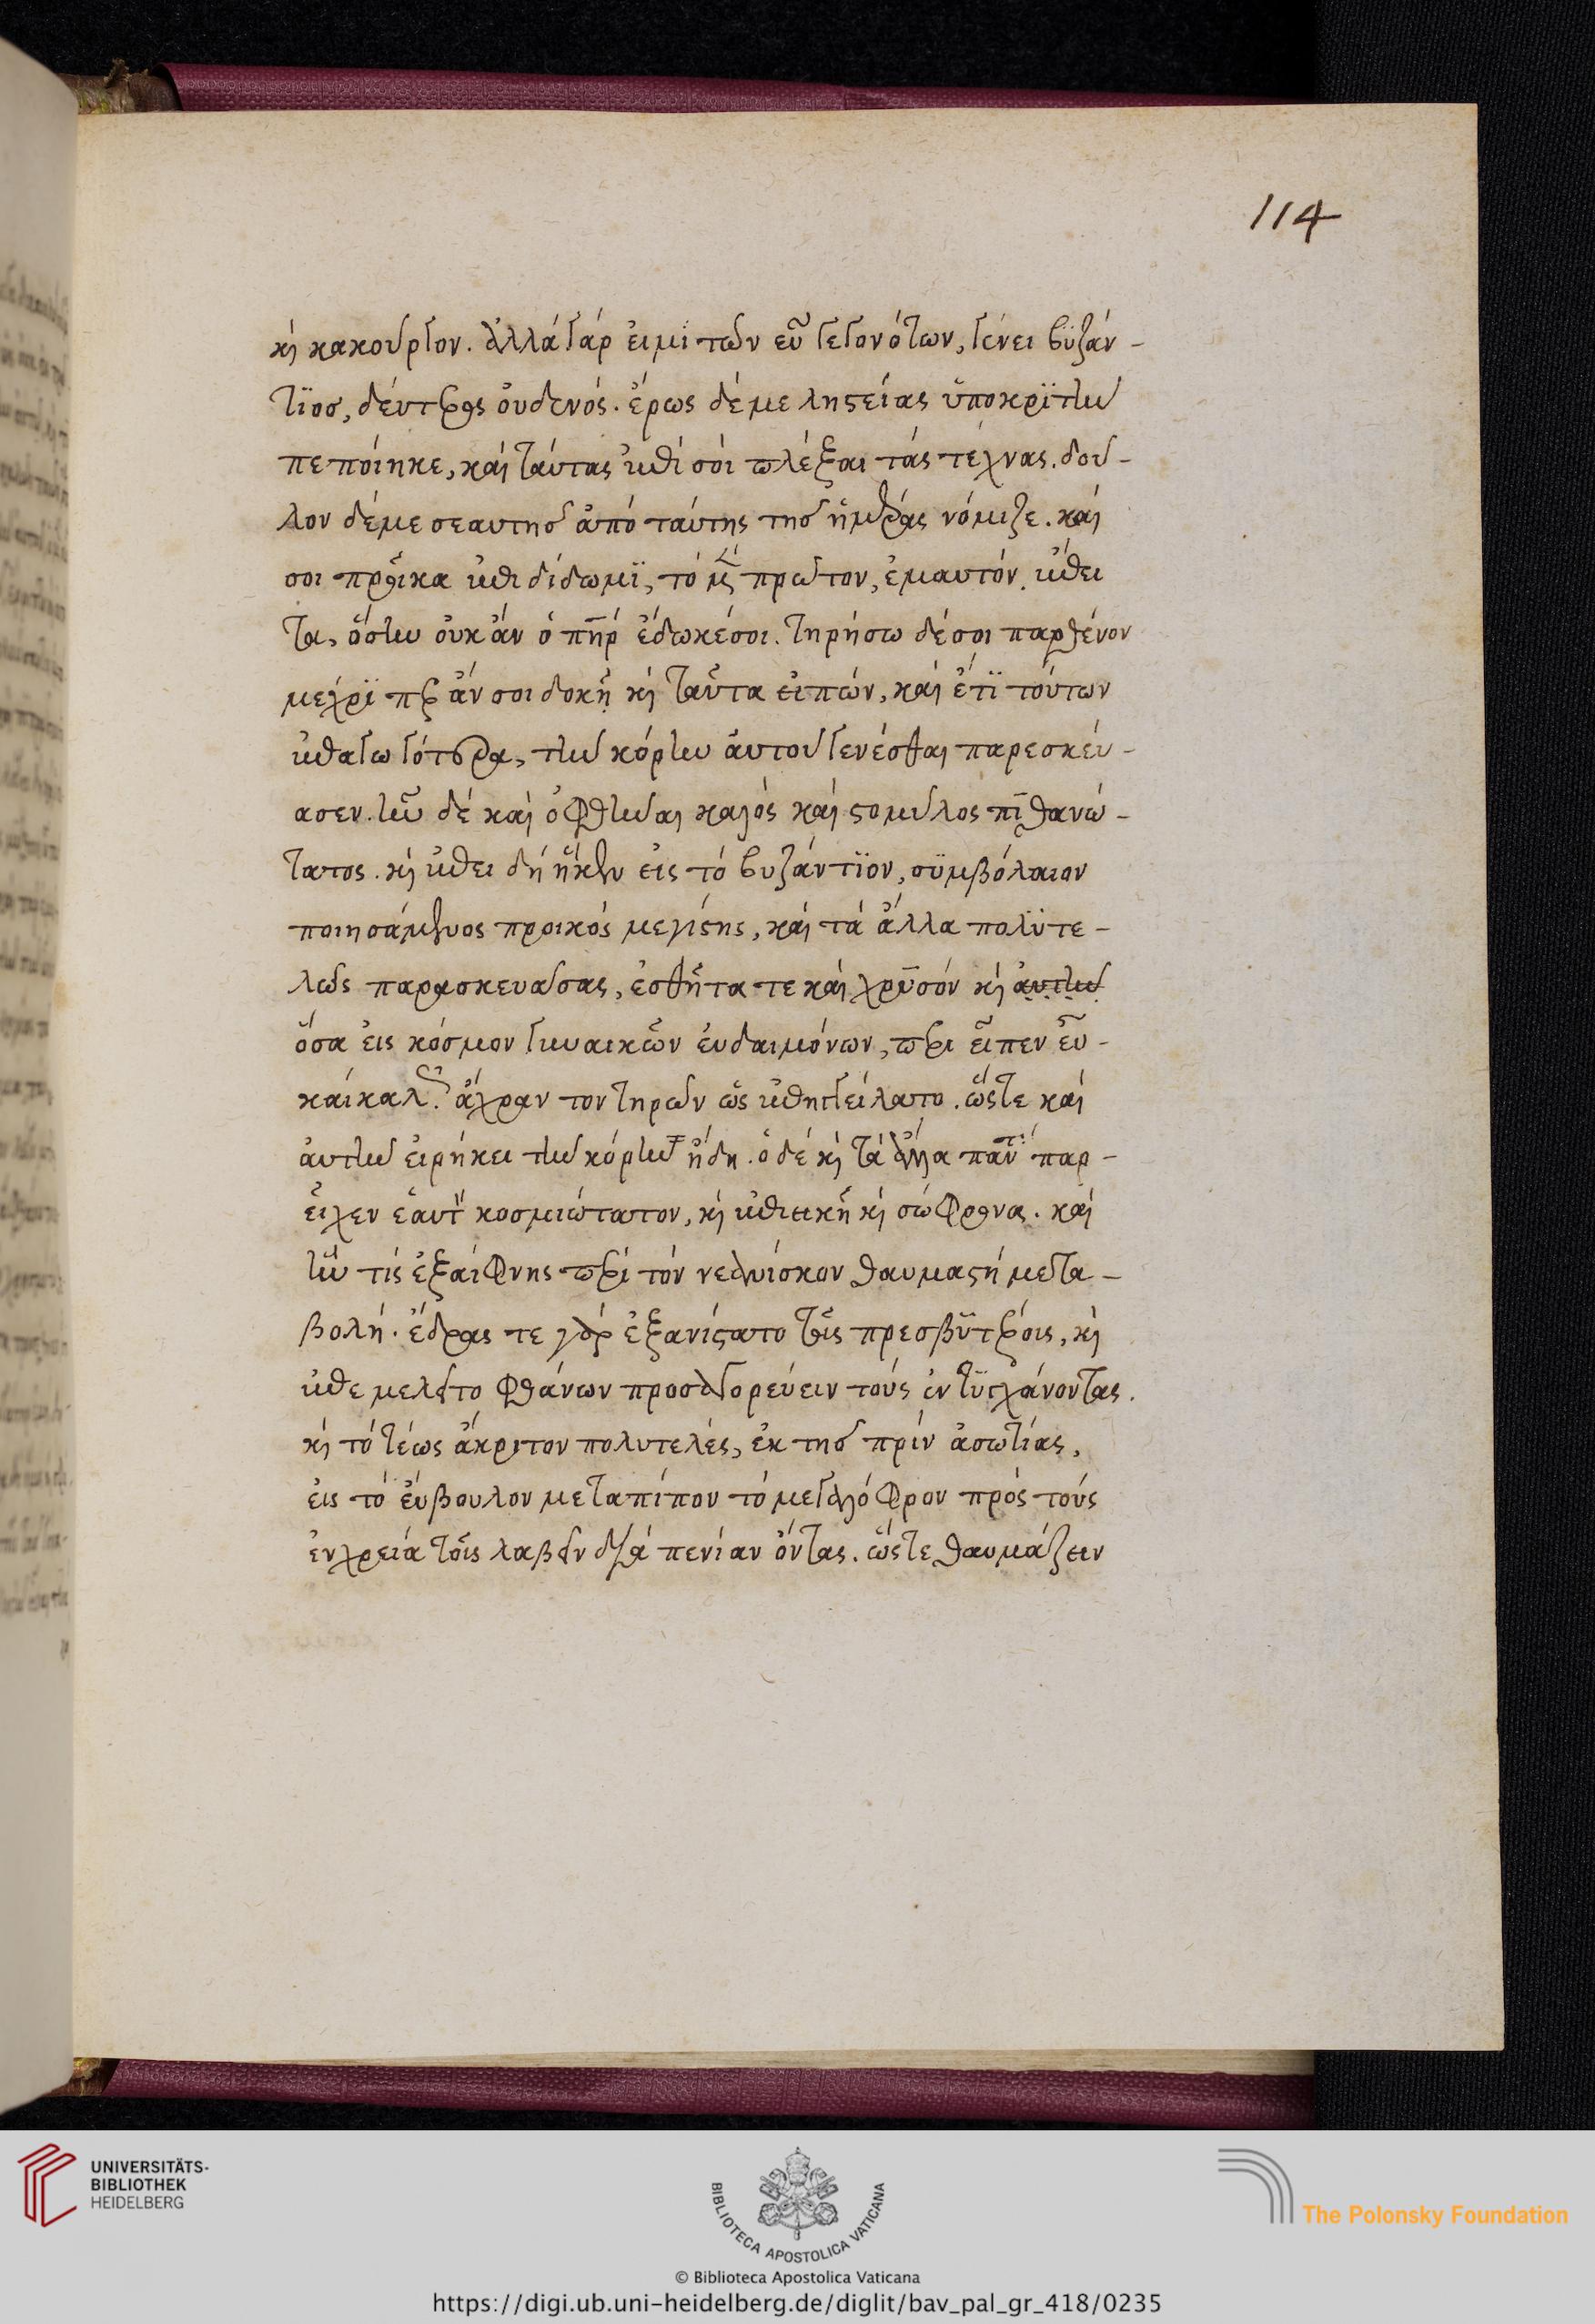 καὶ κακοῦργον. ἀλλὰ γάρ εἰμι τῶν εὖ γεγονότων, γένει βϋζάν-
τϊος, δεύτερος οὐδενός. ἔρως δέ με ληστείας ὑποκρϊτὴν
πεποίηκε, καὶ ταύτας ἐπί σοι πλέξαι τὰς τέχνας. δοῦ-
λον δέ με σεαυτῆς ἀπὸ ταύτης τῆς ἡμέρας νόμιζε. καὶ
σοι προῖκα ἐπιδίδωμϊ, τὸ μὲν πρῶτον, ἐμαυτόν. ἔπει
τα, ὅσην οὐκ ἂν ὁ πῆρ ἔδωκέ σοι. τηρήσω δέ σοι παρθένον
μέχρϊ περ ἄν σοι δοκῇ καὶ ταῦτα εἰπών, καὶ ἔτϊ τούτων
ἐπαγωγότερα, τὴν κόρην αὑτοῦ γενέσθαι παρεσκεύ-
ασεν. ἦν δὲ καὶ ὀφθῆναι καλός καὶ στομύλος πιθανώ-
τατος. καὶ ἐπει δὴ ἧκεν εἰς τὸ βυζάντϊον, σϋμβόλαιον
ποιησάμενος προικὸς μεγίστης, καὶ τὰ ἄλλα πολϋτε-
λῶς παρασκευάσας, ἐσθῆτα τε καὶ χρυσὸν καὶ αὐτὴν
ὅσα εἰς κόσμον γυναικῶν εὐδαιμόνων, περι εἶπεν εὖ
καὶ καλῶς. ἄχραν τον τηρῶν ὡς ἐπηγγείλατο. ὥστε καὶ
αὐτὴν εἰρήκει τὴν κόρην ἤδη. ὁ δὲ καὶ τὰ ἄλλα παντ παρ-
εῖχεν ἑαυτ κοσμιώτατον, καὶ ἐπιεικῆ καὶ σώφρονα. καὶ
ἦν τίς ἐξαίφνης περὶ τὸν νεανίσκον θαυμαστὴ μετα-
βολή. ἕδρας τε γὰρ ἐξανίστατο τοῖς πρεσβϋτέροις, καὶ
ἐπε μελεῖτο φθάνων προσαγορεύειν τοὺς ἐντϋγχάνοντας.
καὶ τὸ τέως ἄκριτον πολυτελές, ἐκ τῆς πρὶν ἀσωτίας,
εἰς τὸ εὔβουλον μεταπίπον τὸ μεγαλόφρον πρὸς τοὺς
ἐν χρεία τοῖς λαβεῖν διὰ πενίαν ὄντας. ὥστε θαυμάζειν
114
UNIVERSITÄTS-
BIBLIOTHEK
HEIDELBERG
BIBLIOTECA APOSTOLICA VATICANA
© Biblioteca Apostolica Vaticana
The Polonsky Foundation
https://digi.ub.uni-heidelberg.de/diglit/bav_pal_gr_418/0235